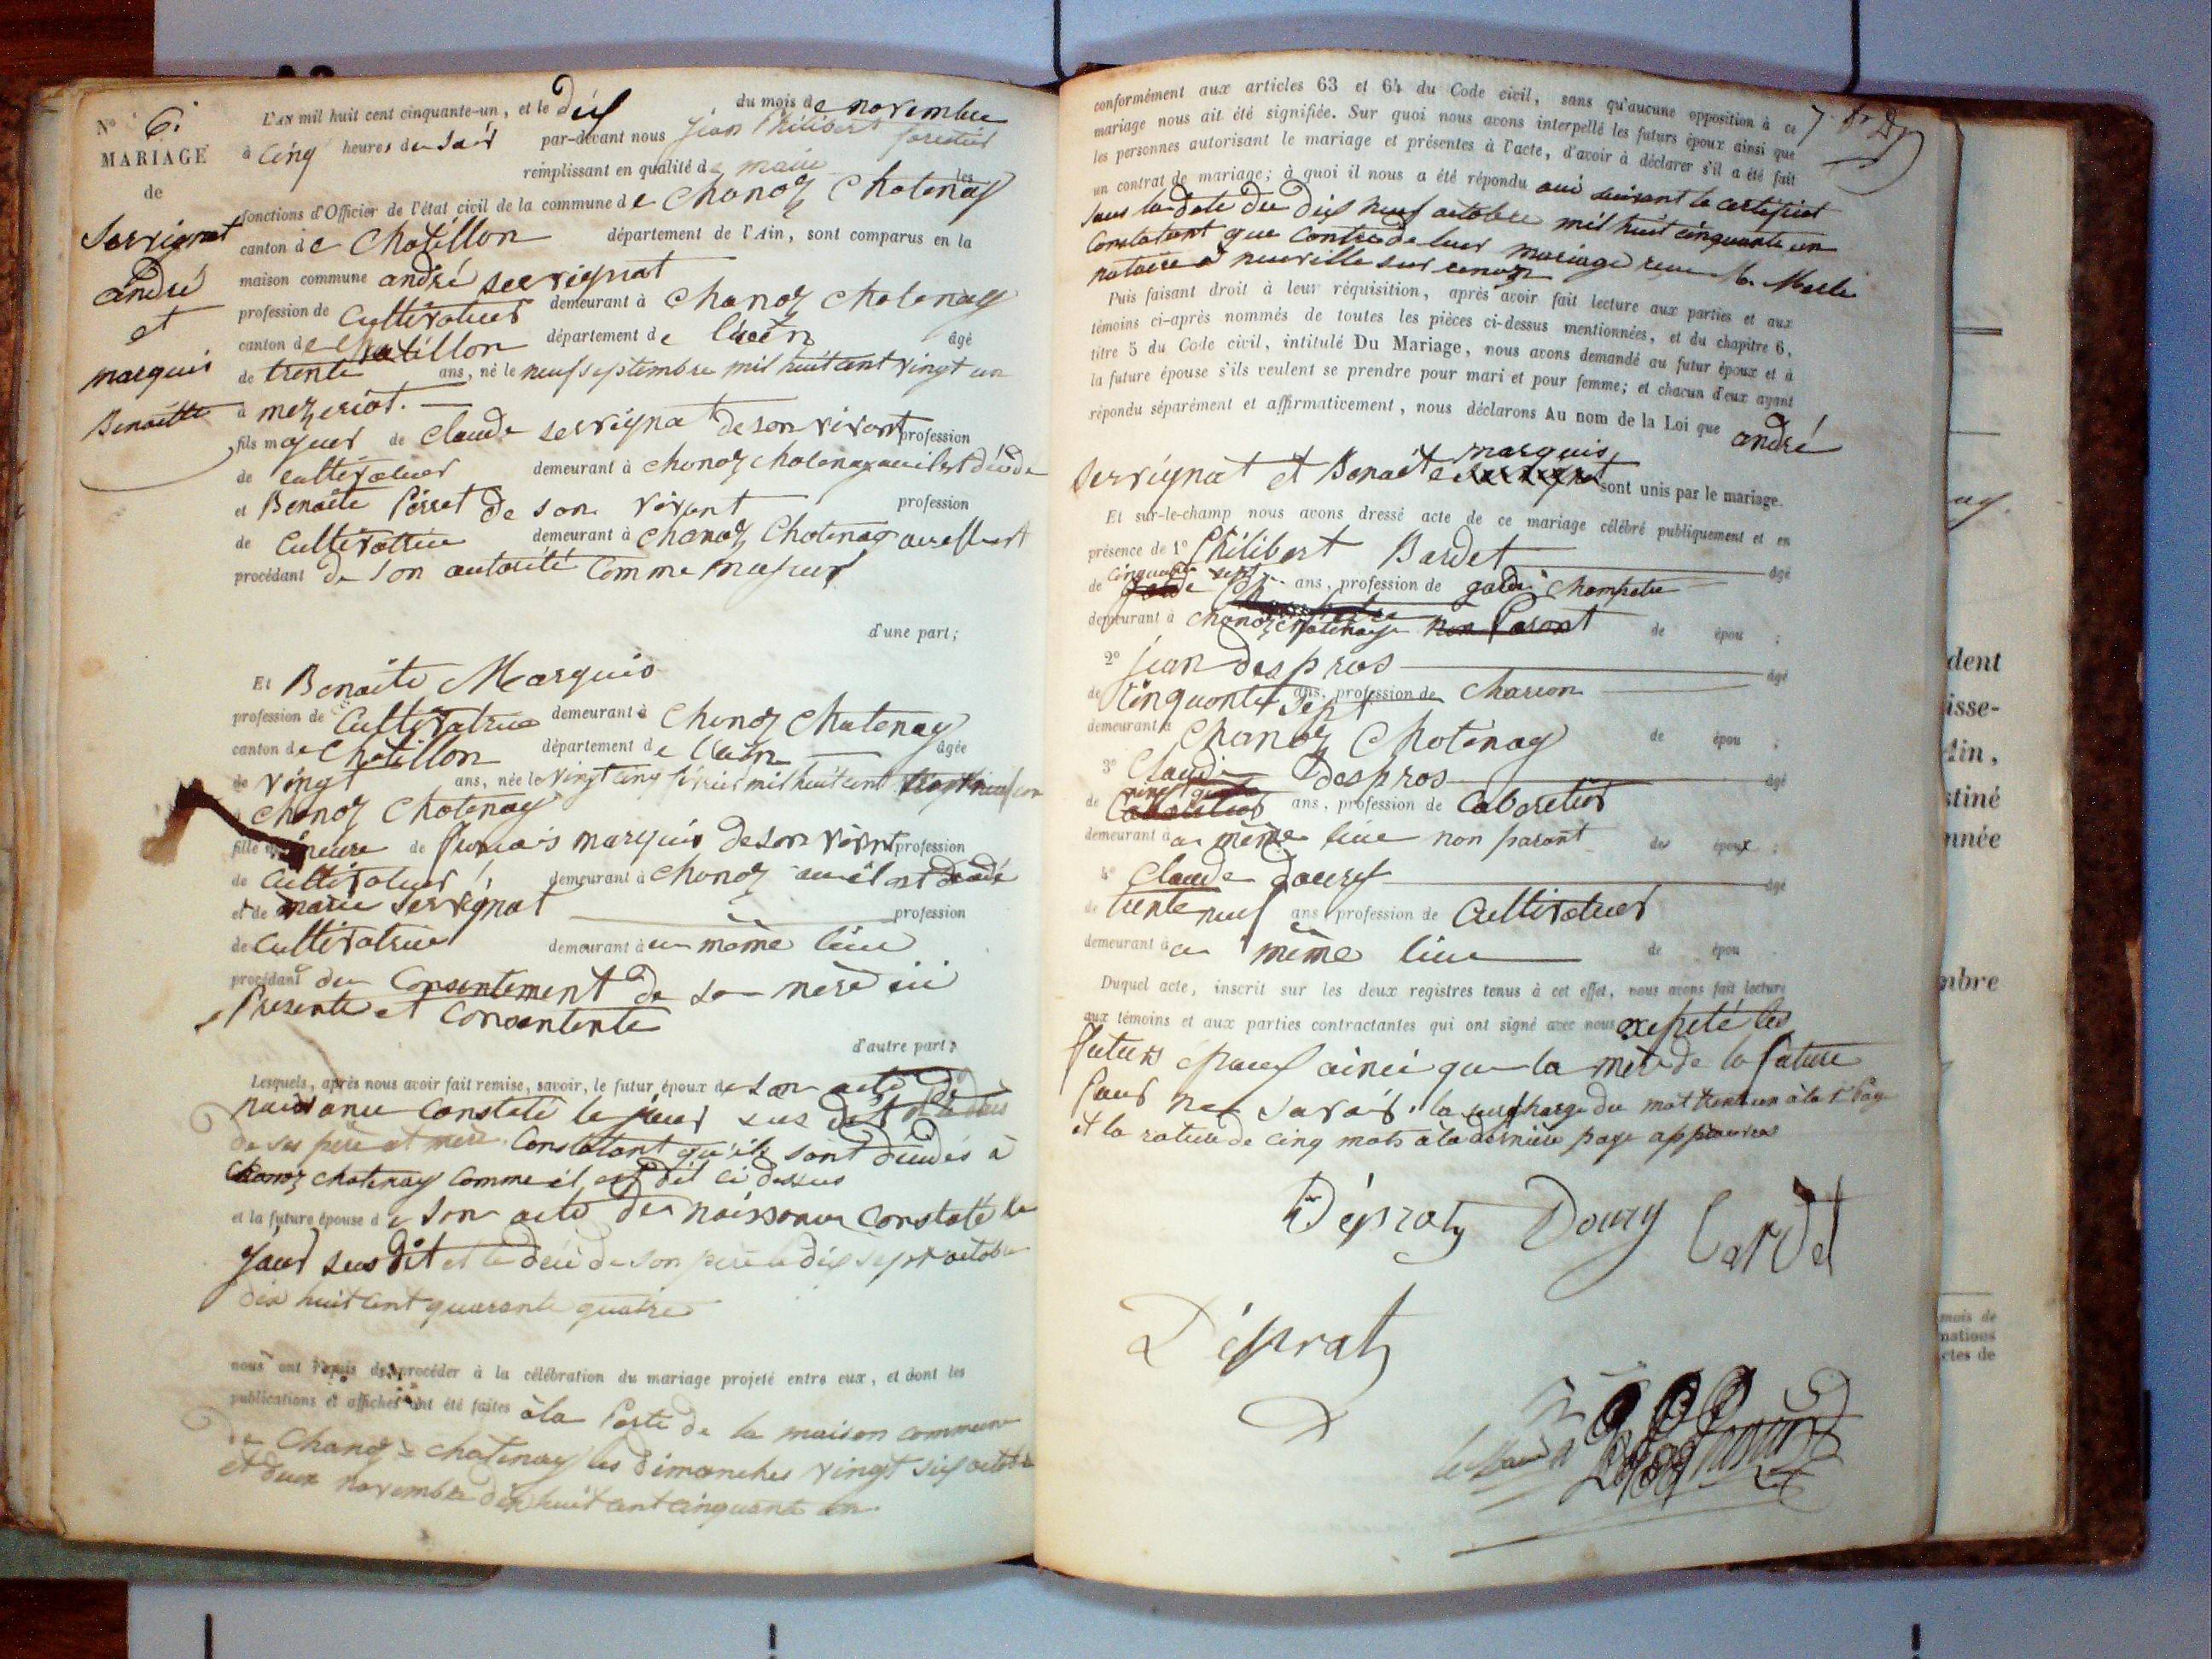 N° 6.
MARIAGE
de
Servignat
André
et
marquis
Benoîtte
L'AN mil huit cent cinquante-un, et le dix du mois de novembre
à cinq heures du soir par-devant nous jean Philibert forestier
remplissant en qualité de maire les
fonctions d'Officier de l'état civil de la commune de Chanoz Chatenay
canton de Chatillon département de l'Ain, sont comparus en la
maison commune andré servignat
profession de Cultivateur demeurant à Chanoz Chatenay
canton de Chatillon département de l'ain âgé
de trente ans, né le neuf septembre mil huit cent vingt un
à mezeriat.
fils majeur de Claude servignat de son vivant profession
de cultivateur demeurant à chanoz chatenay ou il est décédé
et Benoite Perret de son vivant profession
de Cultivatrice demeurant à Chanoz Chatenay
procédant de son autorité comme majeur
d'une part;
Et Benoite Marquis
profession de Cultivatrice demeurant à Chanoz Chatenay
canton de Chatillon département de l'ain âgée
de vingt ans, née le vingt cinq février mil huit cent
à Chanoz Chatenay
fille mineure de François marquis de son vivant profession
de Cultivateur demeurant à Chanoz ou il est décédé
et de marie servignat profession
de Cultivatrice demeurant à au même lieu
procédant du Consentement de sa mère ici
Presente et Consentente
d'autre part;
Lesquels, après nous avoir fait remise, savoir, le futur époux de son acte de
naissance constaté le jour sus dit
de ses père et mère Constatant qu'ils sont décédés à
Chanoz chatenay comme il est dit ci dessus
et la future épouse de son acte de naissance Constaté le
jour sus dit et le décè de son père le dix sept octobre
dix huit cent quarante quatre
nous ont requis de procéder à la célébration du mariage projeté entre eux, et dont les
publications et affiches ont été faites à la Porte de la maison commune
de Chanoz chatenay les dimanches vingt six octobre
et deux novembre dix huit cent cinquante un
conformément aux articles 63 et 64 du Code civil, sans qu'aucune opposition à ce
mariage nous ait été signifiée. Sur quoi nous avons interpellé les futurs époux ainsi que
les personnes autorisant le mariage et présentes à l'acte, d'avoir à déclarer s'il a été fait
un contrat de mariage; à quoi il nous a été répondu oui suivant le certificat
sous la date du dix neuf octobre mil huit cinquante un
Constatant que Contra de leur mariage reçu Me. Merle
notaire à neuville sur renon
Puis faisant droit à leur réquisition, après avoir fait lecture aux parties et aux
témoins ci-après nommés de toutes les pièces ci-dessus mentionnées, et du chapitre 6,
titre 5 du Code civil, intitulé Du Mariage, nous avons demandé au futur époux et à
la future épouse s'ils veulent se prendre pour mari et pour femme; et chacun d'eux ayant
répondu séparément et affirmativement, nous déclarons Au nom de la Loi que andré
marquis
Servignat et Benoite sont unis par le mariage.
Et sur-le-champ nous avons dressé acte de ce mariage célébré publiquement et en
présence de 1° Philibert Bardet âgé
de cinquante sept ans, profession de garde Champetre
demeurant à chanoz chatenay non Parent de épou ;
2° jean despras âgé
de Cinquante sept ans, profession de Charon
demeurant à Chanoz Chatenay de épou ;
3° Claude despras âgé
de ans, profession de Cabaretier
demeurant à au même lieu non parent des époux ;
4° Claude douzy âgé
de trente neuf ans profession de Cultivateur
demeurant à au même lieu de épou
Duquel acte, inscrit sur les deux registres tenus à cet effet, nous avons fait lecture
aux témoins et aux parties contractantes qui ont signé avec nous excepté les
futurs époux ainsi que la mère de la future
Pour ne savoir. la surcharge du mot trente un à la 1re Page
et la rature de cinq mots à la dernière page approuvés
Déspraty Doury Bardet
Déspraty
le Maire